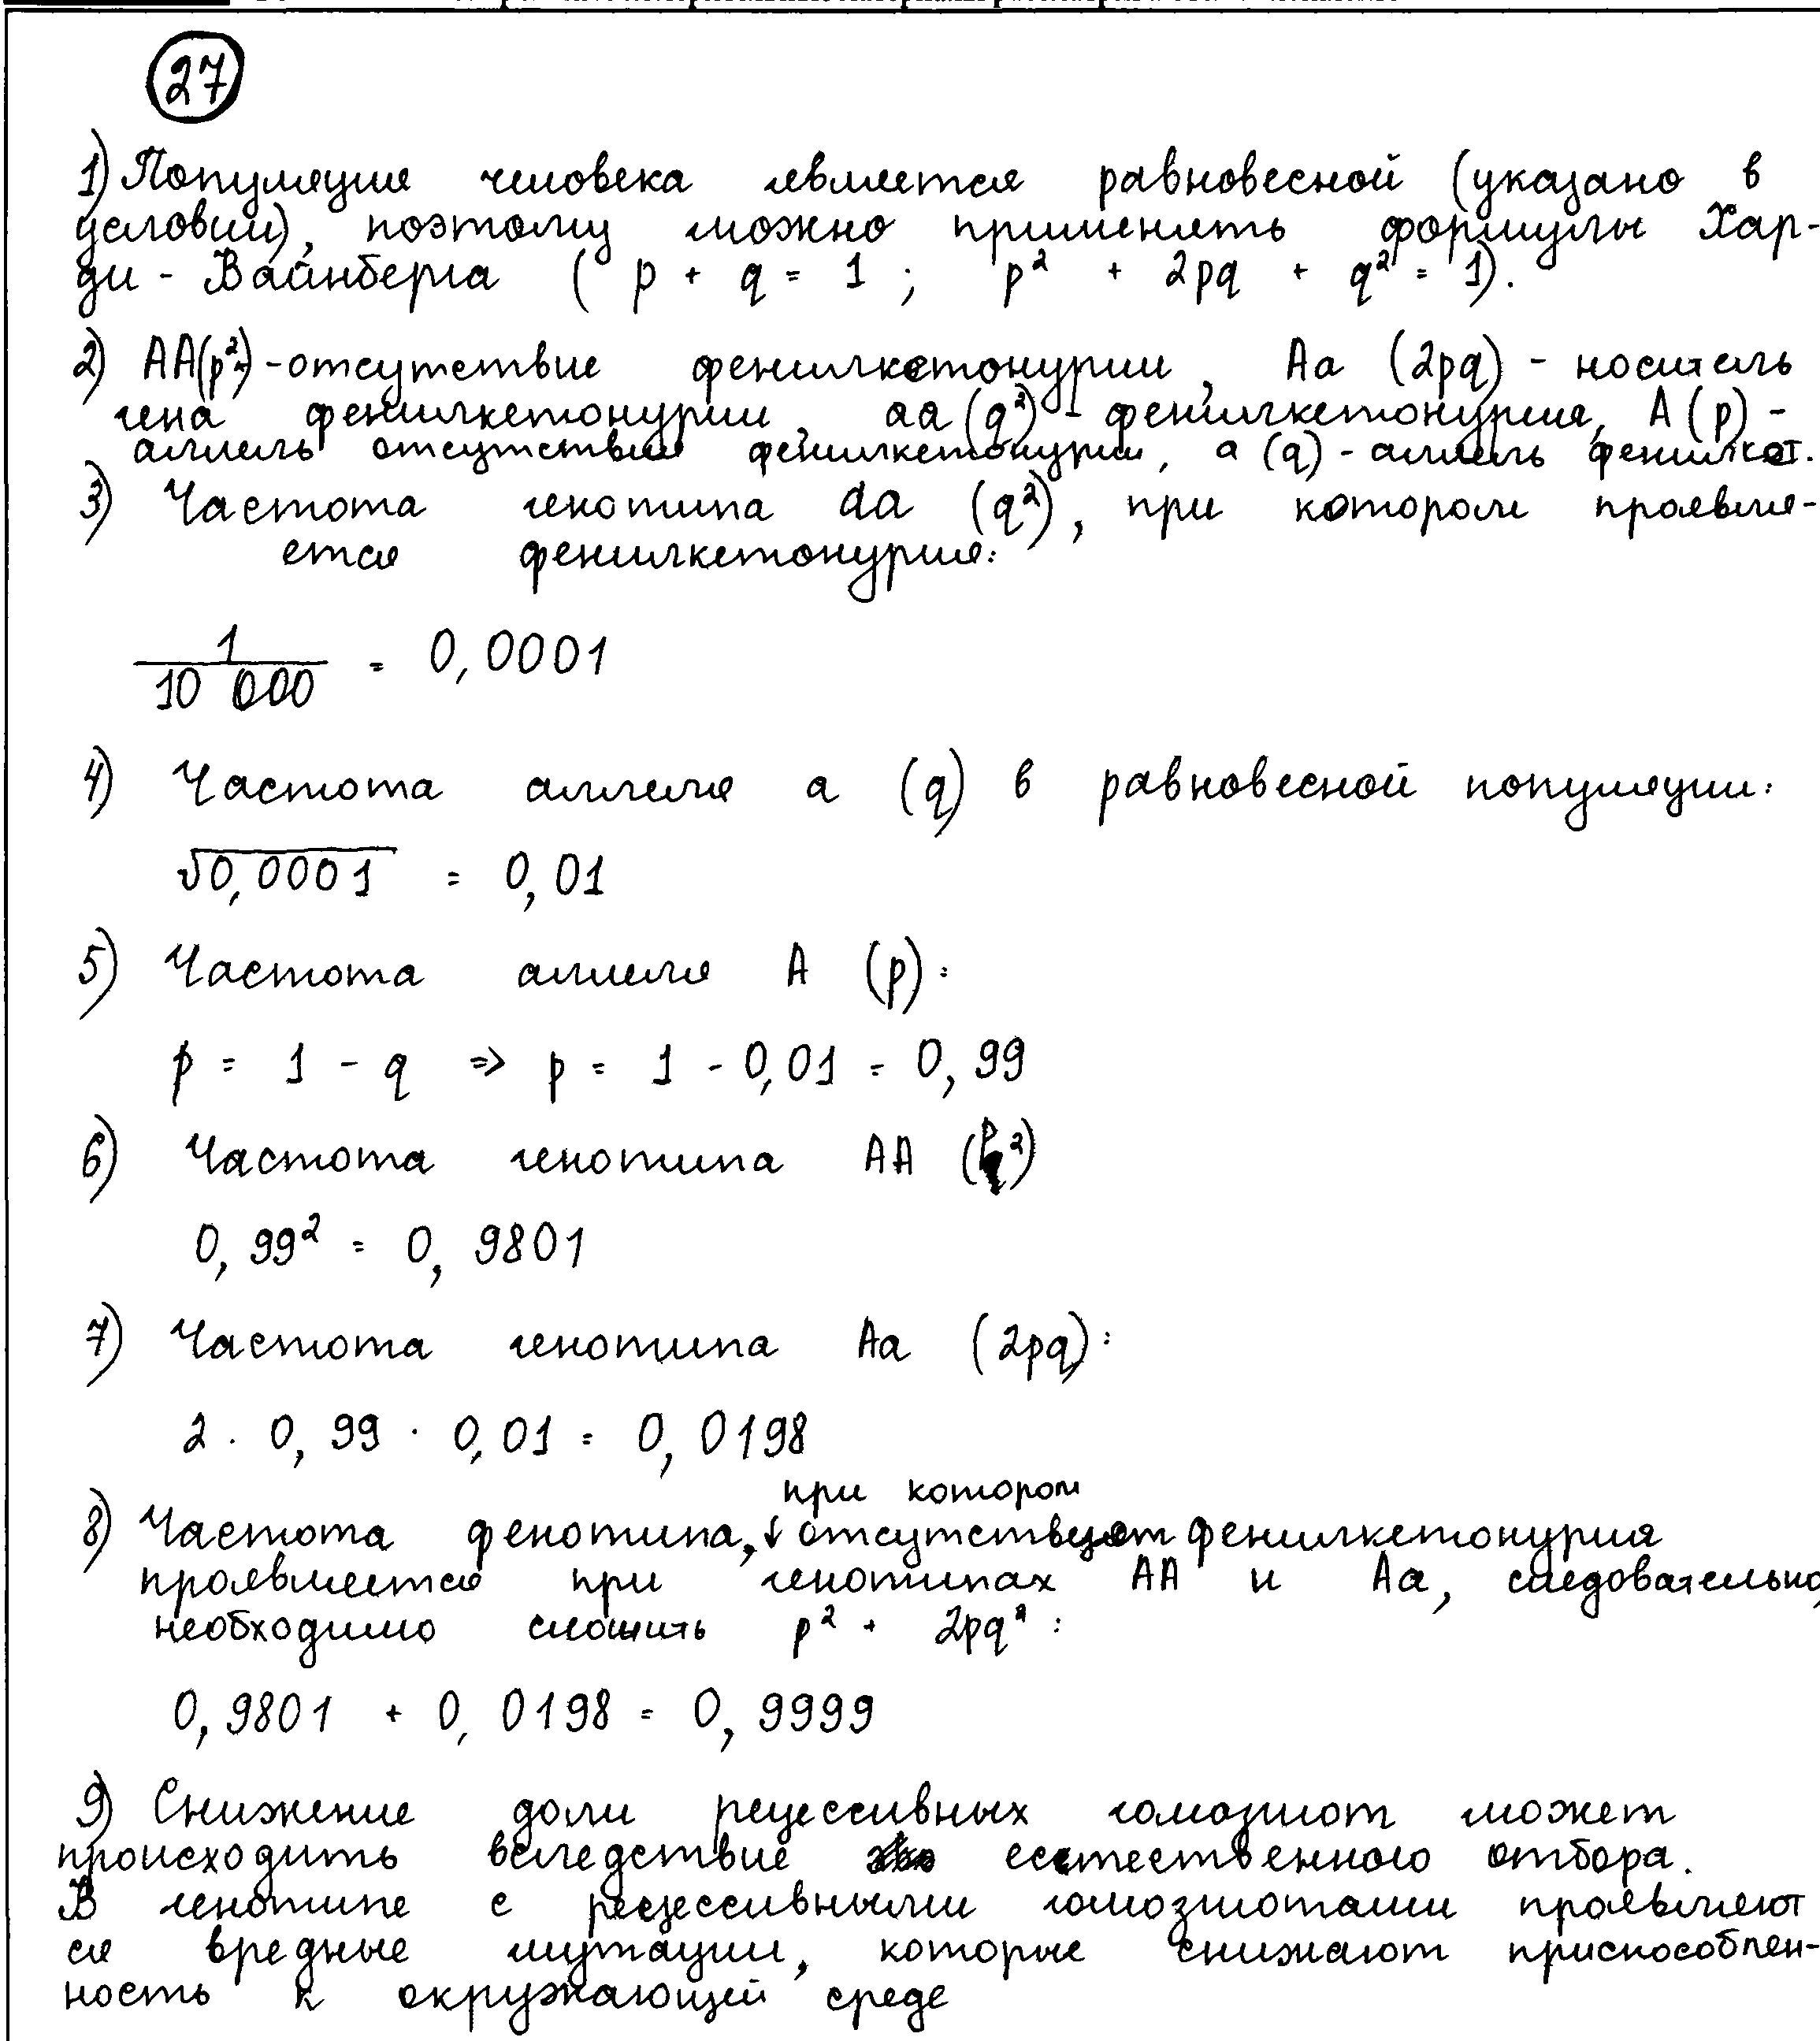 27
1) Популяция человека является равновесной (указано в
условии), поэтому можно применять формулы Хар-
ди - Вайнберга ( p + q = 1 ; p² + 2pq + q² = 1).
2) AA(p²) - отсутствие фенилкетонурии, Aa (2pq) - носитель
гена фенилкетонурии, aa (q²) - фенилкетонурия, A (p) -
аллель отсутствия фенилкетонурии, a (q) - аллель фенилкет.
3) Частота генотипа aa (q²), при котором проявля-
ется фенилкетонурия:
1/10 000 = 0,0001
4) Частота аллеля a (q) в равновесной популяции:
√0,0001 = 0,01
5) Частота аллеля A (p):
p = 1 - q => p = 1 - 0,01 = 0,99
6) Частота генотипа AA (p²)
0,99² = 0,9801
7) Частота генотипа Aa (2pq):
2 · 0,99 · 0,01 = 0,0198
при котором
8) Частота фенотипа, ↓ отсутствует фенилкетонурия
проявляется при генотипах AA и Aa, следовательно,
необходимо сложить p² + 2pq² :
0,9801 + 0,0198 = 0,9999
9) Снижение доли рецессивных гомозигот может
происходить вследствие естественного отбора.
В генотипе с рецессивными гомозиготами проявляют
ся вредные мутации, которые снижают приспособлен-
ность к окружающей среде